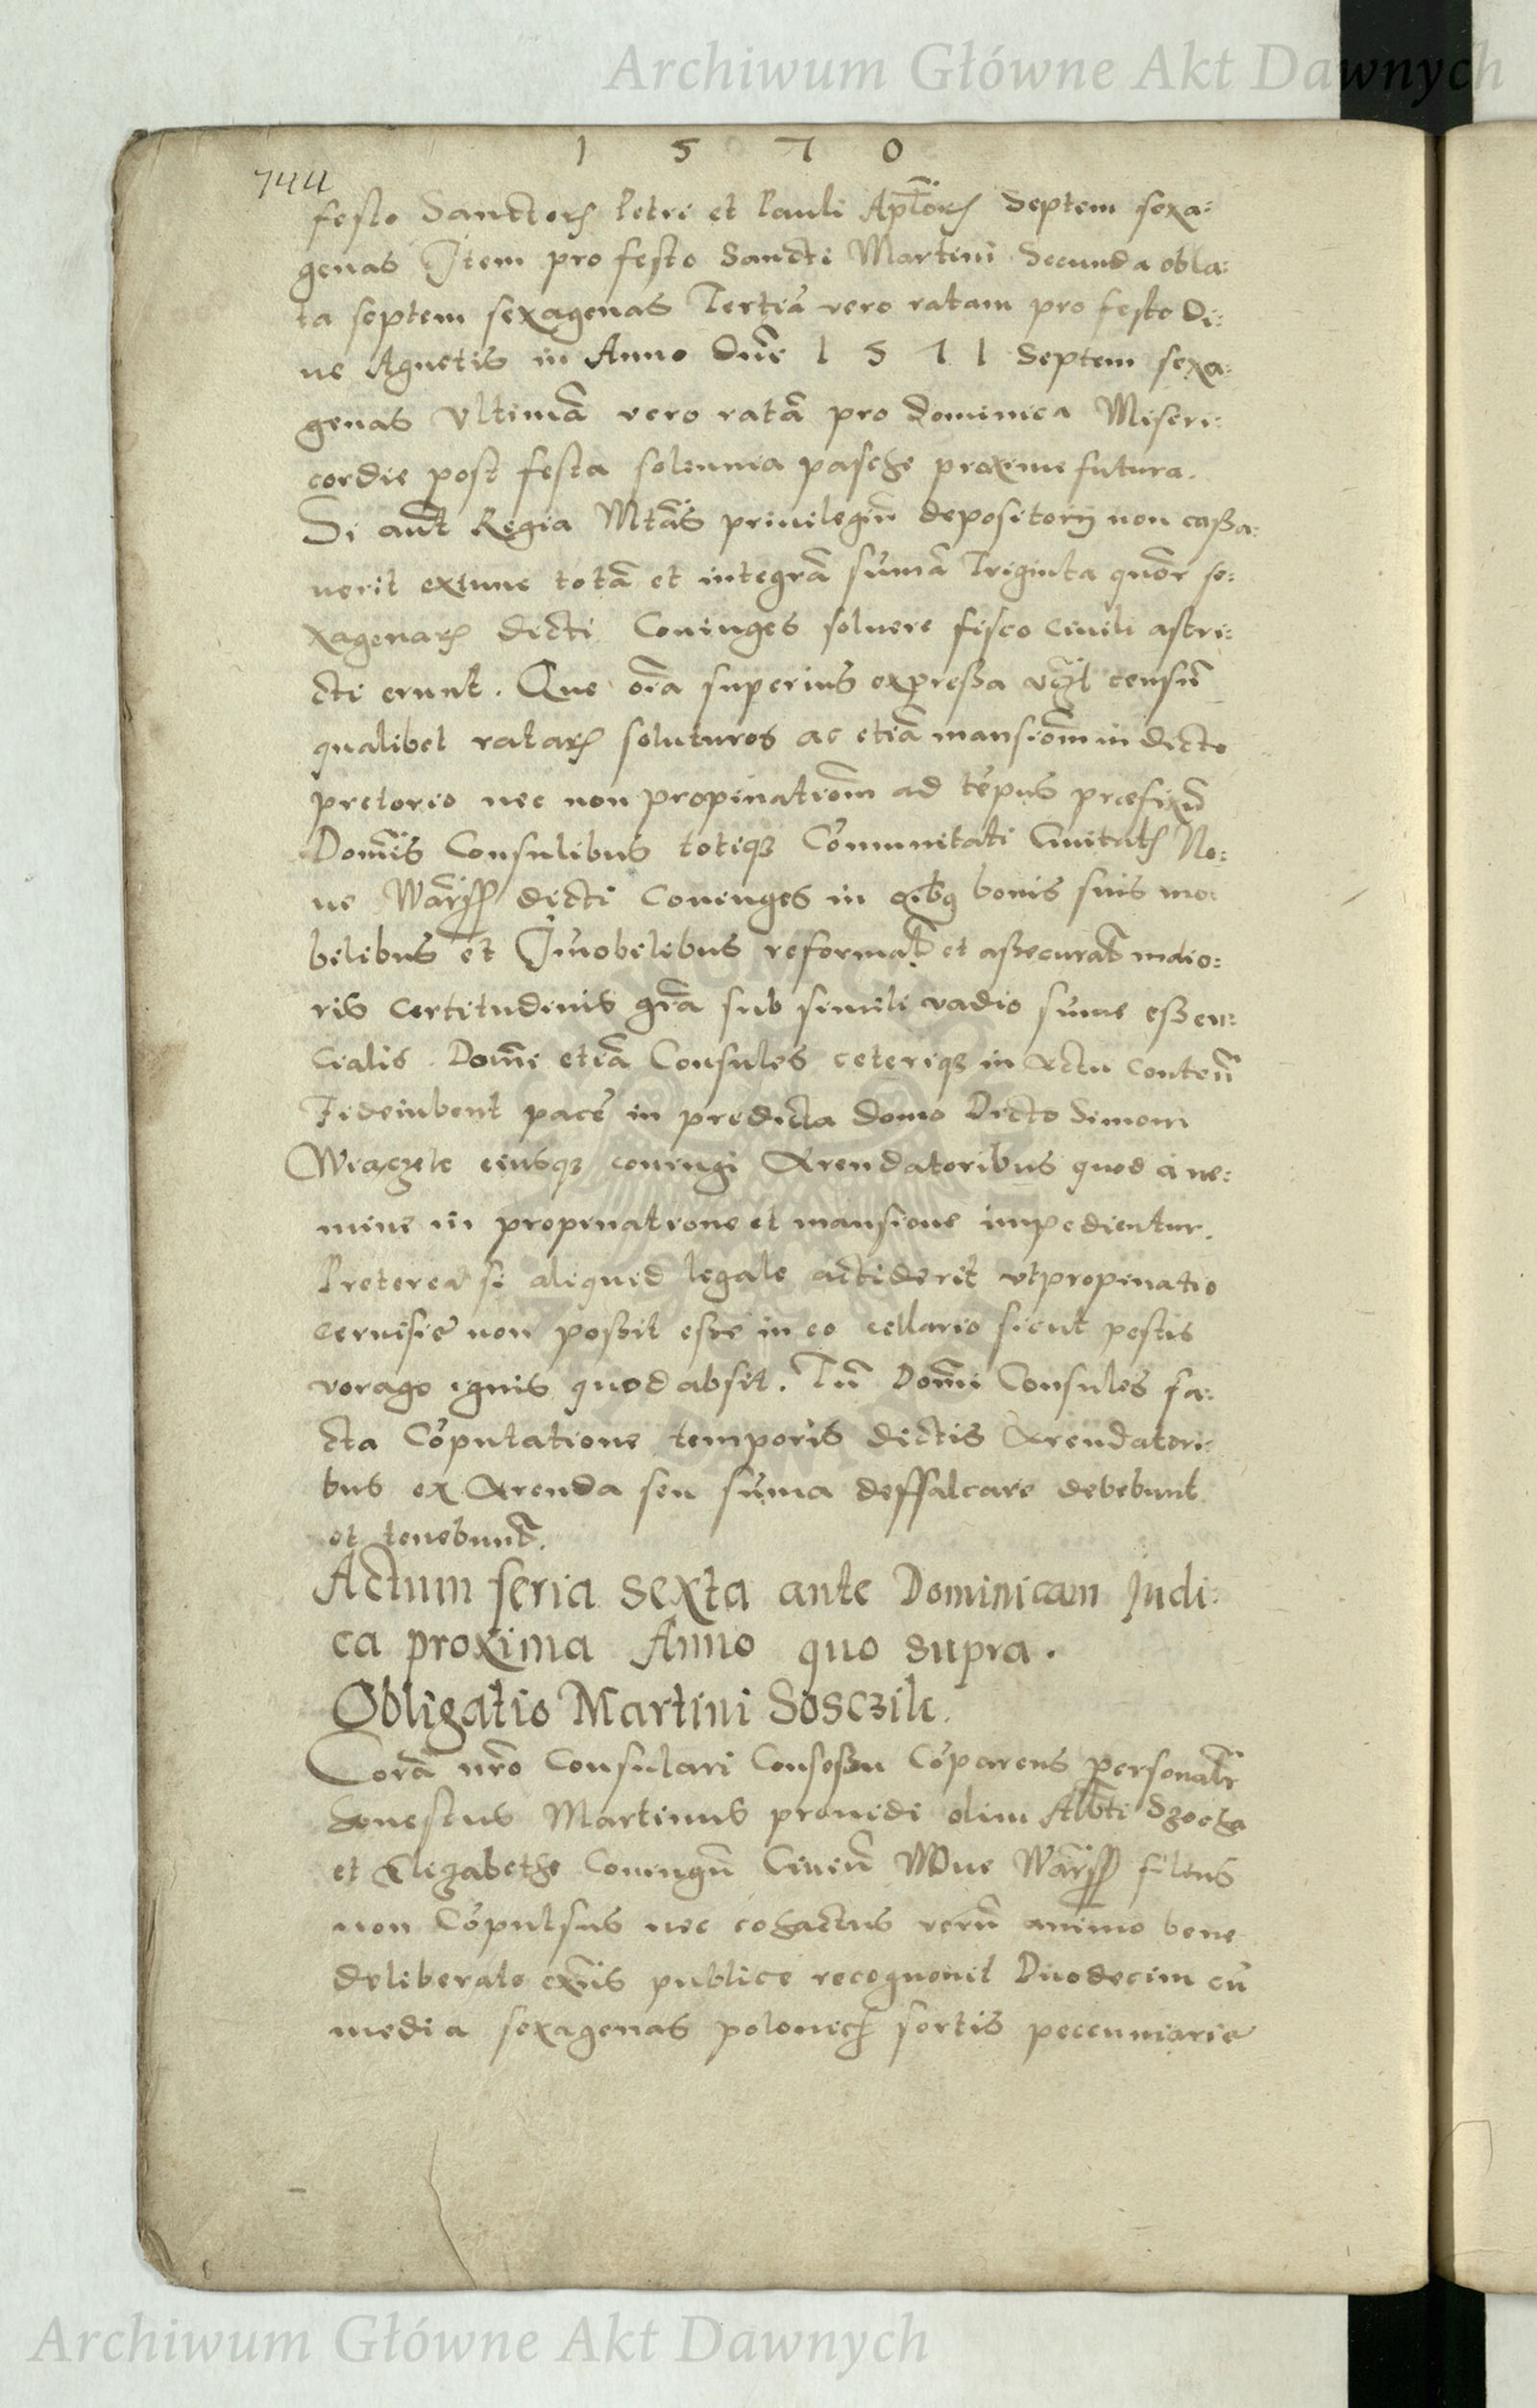 Archiwum Główne Akt Dawnych
1 5 7 0
744
festo Sanctorꝝ Petri et Pauli Apl̃orꝝ Septem sexa:
genas Item pro festo Sancti Martini Secunda obla:
ta septem sexagenas Tertiã vero ratam pro festo Di:
ue Agnetis in Anno Dñi 1 5 7 1 Septem sexa:
genas Vltimã vero ratã pro dominica Miseri:
cordie post festa solennia pasche proxime futura.
Si aũt Regia Mtãs priuilegiũ depositorij non cassa:
uerit extunc totã et integrã sũmã Triginta quõr se:
xagenarꝝ dicti Coniuges soluere fisco ciuili astri:
cti erunt. Que oĩa superius expressa censũ
qualibet ratarꝝ soluturos ac etiã mansiõm in dicto
pretorio nec non propinatiõm ad tẽpus præfixũ
Domĩs Consulibus totiqꝫ Cõmunitati Ciuitatꝭ No:
ue Warß dicti Coniuges in oĩbꝯ bonis suis mo:
bilibus et Imobilibus reformat̃ et assecurat̃ maio:
ris certitudinis grã sub simili vadio sũme essen:
cialis. Domĩ etiã Consules ceteriqꝫ in Actu contenũ
Fideiubent pacẽ in predicta domo Dicto Simoni
eiusqꝫ coniugi Arendatoribus quod à ne:
mine in propinatione et mansione impedientur.
Preterea si aliquid legale acciderit vt propinatio
ceruisie non possit esse in eo cellario sicut pestis
vorago ignis quod absit. Tũ Domĩ Consules fa:
cta Cõputatione temporis dictis Arendatori:
bus ex Arenda seu sũma deffalcare debebunt
et tenebunt̃.
Actum feria sexta ante Dominicam Iudi:
ca proxima Anno quo supra.
Obligatio Martini Sosczik.
Corã nr̃o Consulari Consessu Cõparens personalr̃
honestus Martinus prouidi olim Alb̃ti
et Elizabethe Coniugũ Ciuiũ Noue Warß filius
non Cõpulsus nec cohactus verũ animo bene
deliberato exñs publice recognouit Duodecim cũ
media sexagenas polonicꝭ sortis peccuniarie
Archiwum Główne Akt Dawnych